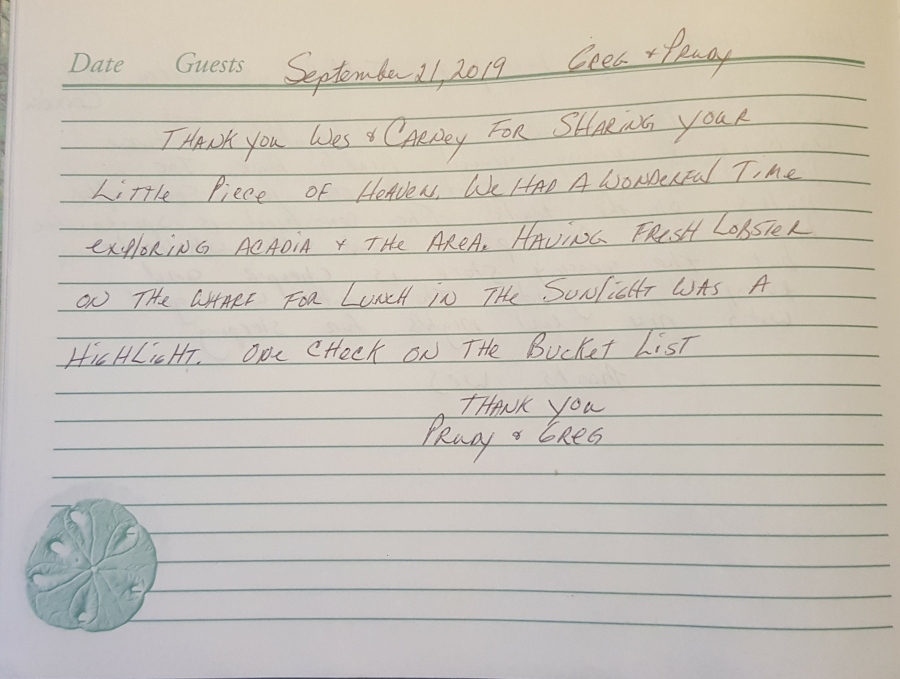 Date Guests September 21, 2019 Greg & Prudy
THANK you Wes & CARNey FOR SHARiNG youR
Little Piece OF HeAVeN. We HAD A WONDERFul Time
exploRiNG ACADiA & THe AReA. HAViNG FResH LOBSTeR
ON THe WHARF FOR LuNcH iN THe SuNliGHT WAS A
HiGHLiGHT. ONe CHeCK ON THe BucKet LiST
THANK you
PRuDy & GReG